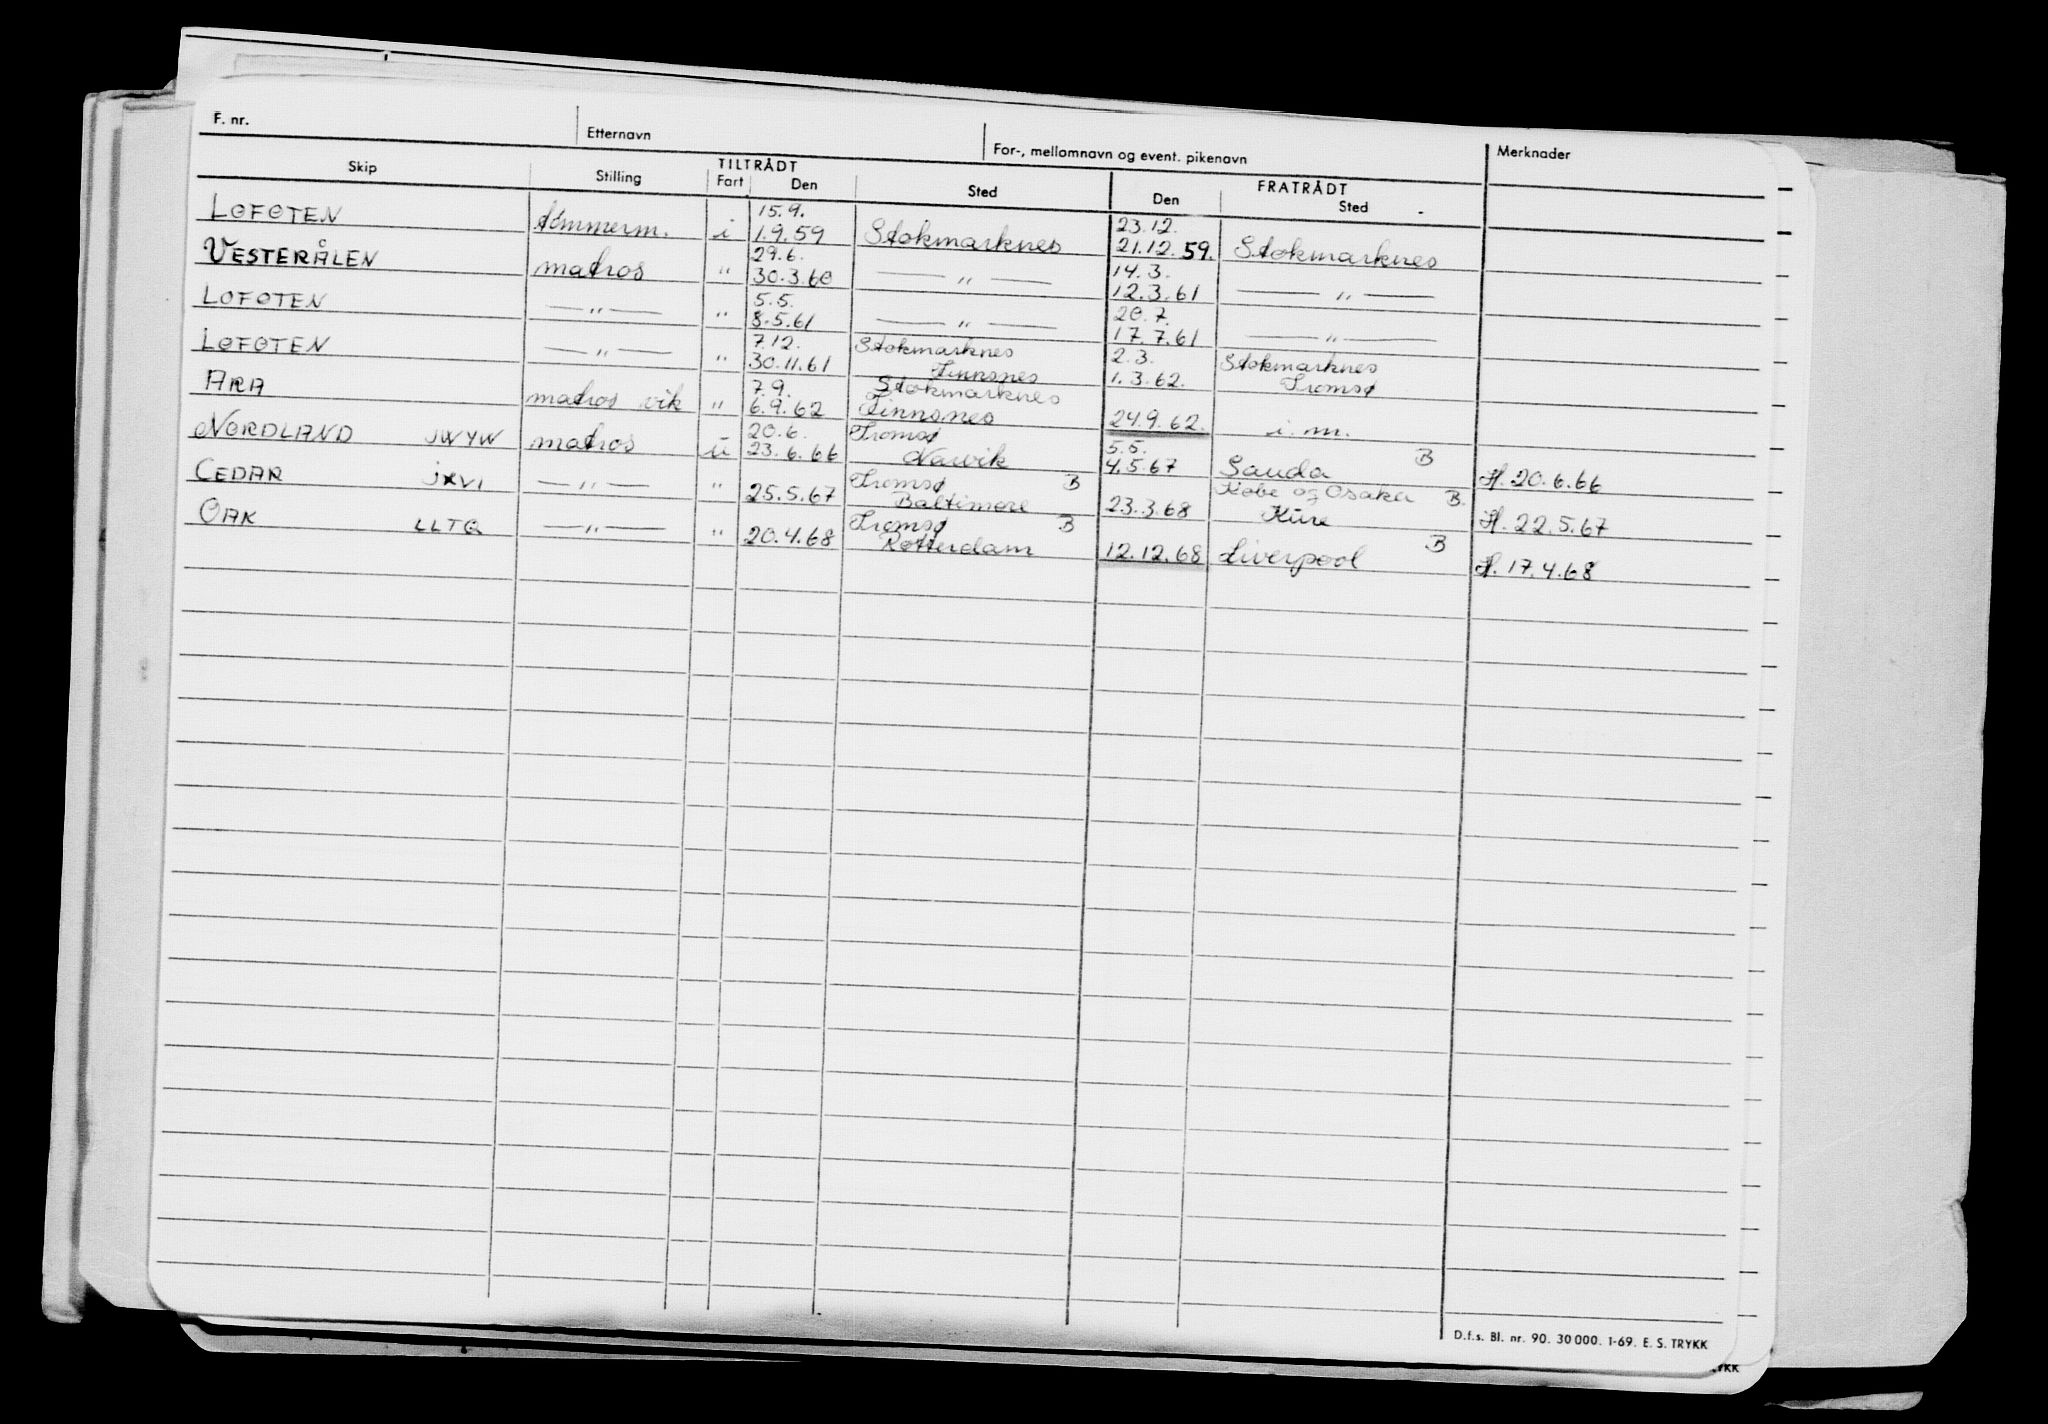 F. nr. Etternavn For-, mellomnavn og event. pikenavn Merknader
TILTRÅDT FRATRÅDT
Skip Stilling Fart Den Sted Den Sted
15.9. 23.12.
LOFOTEN tømmerm. i 1.9.59 Stokmarknes 21.12.59. Stokmarknes
29.6. 14.3.
VESTERÅLEN matros " 30.3.60 — " — 12.3.61 — " —
5.5. 20.7.
LOFOTEN — " — " 8.5.61 — " — 17.7.61 — " —
7.12. Stokmarknes 2.3. Stokmarknes
LOFOTEN — " — " 30.11.61 Finnsnes 1.3.62. Tromsø
7.9. Stokmarknes
ARA matros vik " 6.9.62 Finnsnes 24.9.62. i.m.
20.6. Tromsø 5.5. B
NORDLAND JWYW matros u 23.6.66 Narvik 4.5.67 Sauda H. 20.6.66
Tromsø B Kobe og Osaka B.
CEDAR JXVI — " — " 25.5.67 Baltimore 23.3.68 Kure H. 22.5.67
Tromsø B B
OAK LLTQ — " — " 20.4.68 Rotterdam 12.12.68 Liverpool H. 17.4.68
D.f.s. Bl. nr. 90. 30 000. 1-69. E. S. TRYKK
YKK